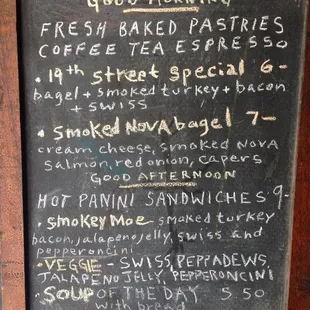 GOOD MORNING
FRESH BAKED PASTRIES
COFFEE TEA ESPRESSO
• 19th Street Special 6-
bagel + smoked turkey + bacon
+ swiss
• Smoked Nova bagel 7-
cream cheese, smoked nova
salmon, red onion, capers
GOOD AFTERNOON
HOT PANINI SANDWICHES 9-
• Smokey Moe smoked turkey
bacon, jalapeno jelly, swiss and
pepperoncini
• VEGGIE - SWISS, PEPPADEWS,
JALAPENO JELLY, PEPPERONCINI
• SOUP OF THE DAY 5.50
with bread